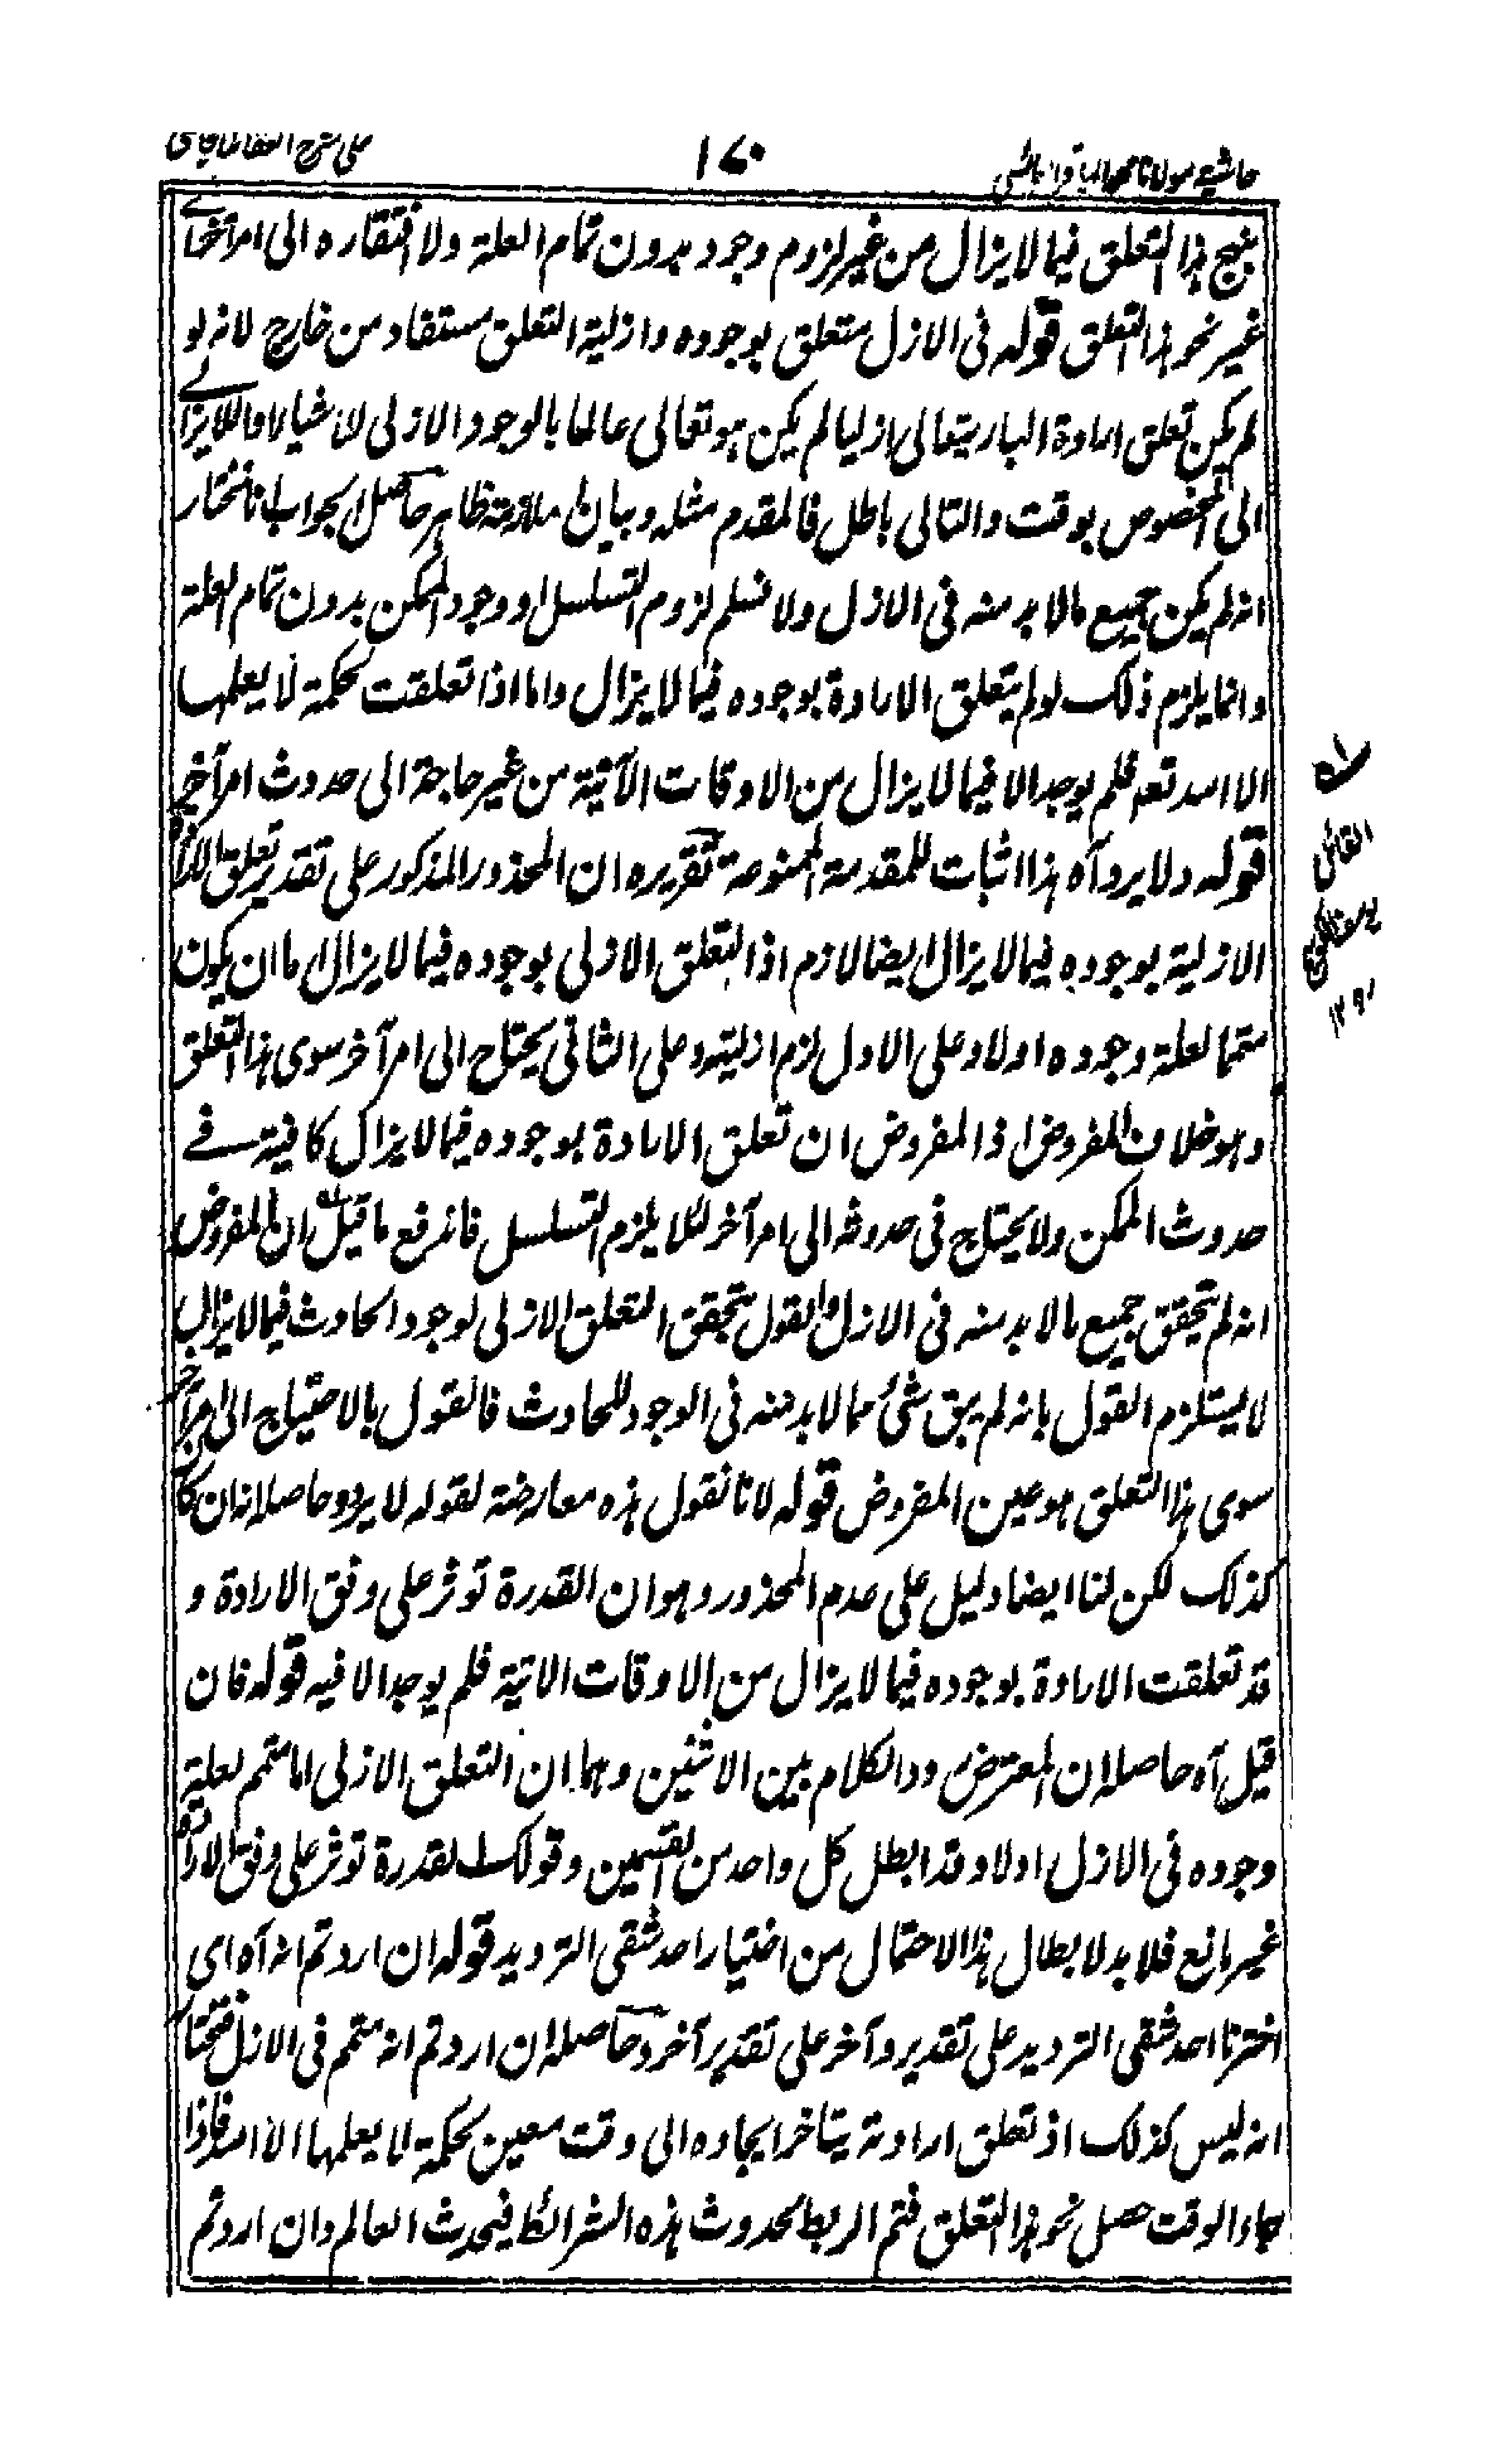 حاشیہ مولانا
١٧٠
علی شرح العقائد
بنهج هذا التعلق فيما لا يزال من غير لزوم وجود بدون تمام العلة ولا افتقاره الى امر آخر
غير نحو هذا التعلق قوله فى الازل متعلق بوجوده وازلية التعلق مستفاد من خارج لانه لو
لم يكن تعلق ارادة البارى تعالى ازليا لم يكن هو تعالى عالما بالوجود الازلى
الى المخصوص بوقت والتالى باطل فالمقدم مثله وبيان الملازمة ظاهر حاصل الجواب انا نختار
انه لم يكن جميع مالا بد منه فى الازل ولا نسلم لزوم التسلسل او وجود الممكن بدون تمام العلة
وانما يلزم ذلك لو لم يتعلق الارادة بوجوده فيما لا يزال واما اذا تعلقت لحكمة لا يعلمها
الا الله تعـ فلم يوجد الا فيما لا يزال من الاوقات الآتية من غير حاجة الى حدوث امر آخر
قوله ولا يرد آه هذا اثبات للمقدمة الممنوعة تقريره ان المحذور المذكور على تقدير تعلق الارادة
الازلية بوجوده فيما لا يزال ايضا لازم اذ التعلق الازلى بوجوده فيما لا يزال اما ان يكون
متمما لعلة وجوده اولا وعلى الاول لزم ازليته وعلى الثانى يحتاج الى امر آخر سوى هذا التعلق
وهو خلاف المفروض اذ المفروض ان تعلق الارادة بوجوده فيما لا يزال كافية فى
حدوث الممكن ولا يحتاج فى حدوثه الى امر آخر لئلا يلزم التسلسل فاندفع ما قيل ان المفروض
انه لم يتحقق جميع مالا بد منه فى الازل والقول بتحقق التعلق الازلى لوجود الحادث فيما لا يزال
لا يستلزم القول بانه لم يبق شئ مما لا بد منه فى الوجود للحادث فالقول بالاحتياج الى امر آخر
سوى هذا التعلق هو عين المفروض قوله لانا نقول هذه معارضة لقوله لا يرد وحاصله انه ان كا
كذلك لكن لنا ايضا دليل على عدم المحذور وهو ان القدرة توثر على وفق الارادة و
قد تعلقت الارادة بوجوده فيما لا يزال من الاوقات الاتية فلم يوجد الا فيه قوله فان
قيل آه حاصله ان المعترض ردد الكلام بين الاثنين وهما ان التعلق الازلى اما متمم لعلية
وجوده فى الازل اولا وقد ابطل كل واحد من القسمين وقولك القدرة توثر على وفق الارادة
غير مانع فلا بد لابطال هذا الاحتمال من اختيار احد شقى الترديد قوله ان اردتم انه آه اى
اخترنا احد شقى الترديد على تقدير وآخر على تقدير آخر وحاصله ان اردتم انه متمم فى الازل فنختار
انه ليس كذلك اذ تعلق ارادته يتاخر ايجاده الى وقت معين لحكمة لا يعلمها الا الله فاذا
جاء الوقت حصل نحو هذا التعلق فتم الربط لحدوث هذه الشرائط فيحدث العالم وان اردتم
القائل
١٢